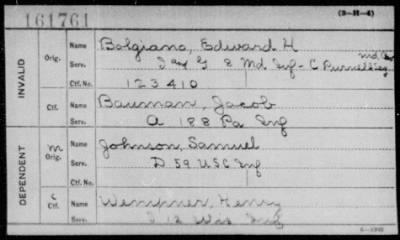 161761
(3-H-4)
INVALID
Orig. Name Bolgiano, Edward H
Serv. G 8 Md Inf - C Purnell Leg Md
Ctf. No. 123410
Ctf. Name Bauman, Jacob
Serv. A 188 Pa Inf
DEPENDENT
M Orig. Name Johnson, Samuel
Serv. D 59 USC Inf
Ctf. No.
C Ctf. Name Wempner, Henry
Serv. 12 Wis Inf